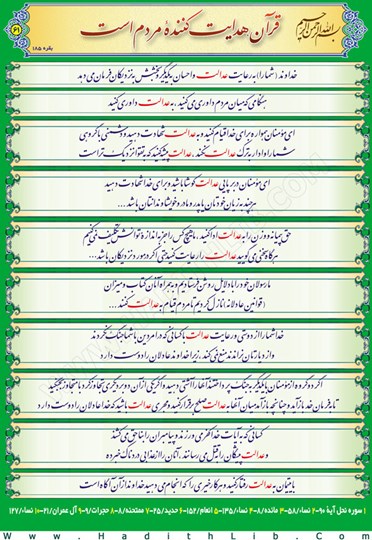 بسم الله الرحمن الرحیم
قرآن هدایت کنندهٔ مردم است
بقره ۱۸۵
۶۱
خداوند (شما را) به رعایت عدالت و احسان با یکدیگر و بخشش به نزدیکان فرمان می دهد
هنگامی که میان مردم داوری می کنید، به عدالت داوری کنید
ای مؤمنان همواره برای خدا قیام کنید و به عدالت شهادت دهید و دشمنی با گروهی
شما را وادار به ترک عدالت نکند، عدالت پیشه کنید که به تقوا نزدیک تر است
ای مؤمنان در برپایی عدالت کوشا باشید و برای خدا شهادت دهید
هر چند به زیان خودتان یا پدر و مادر و خویشاوندانتان باشد...
حق پیمانه و وزن را به عدالت ادا کنید، ما هیچ کس را جز به اندازه توانش تکلیف نمی کنیم
هرگاه سخنی می گویید عدالت را رعایت کنید حتی اگر در مورد نزدیکان باشد...
ما رسولان خود را با دلایل روشن فرستادیم و به همراه آنان کتاب و میزان
(قوانین عادلانه) نازل کردیم تا مردم قیام به عدالت کنند...
خدا شما را از دوستی و رعایت عدالت با کسانی که در امر دین با شما جنگ نکردند
و از دیارتان نراندند منع نمی کند، زیرا خداوند عادلان را دوست دارد
اگر دو گروه از مؤمنان با یکدیگر به جنگ پرداختند آنها را آشتی دهید و اگر یکی از آن دو بر دیگری تجاوز کرد با متجاوز بجنگید
تا به فرمان خدا باز آید و چنانچه باز آمد میان آنها به عدالت صلح برقرار کنید و مجری عدالت باشید که خدا عادلان را دوست دارد
کسانی که به آیات خدا کفر می ورزند و پیامبران را بناحق می کشند
و عدالت پیشگان را به قتل می رسانند، آنان را از عذابی دردناک خبر ده
با یتیمان به عدالت رفتار کنید و هر کار خیری را که انجام می دهید خداوند از آن آگاه است
۱ سوره نحل آیهٔ ۹۰-۲ نساء/۵۸-۳ مائده/۸-۴ نساء/۱۳۵-۵ انعام/۱۵۲-۶ حدید/۲۵-۷ ممتحنه/۸-۸ حجرات/۹-۹ آل عمران/۲۱-۱۰ نساء/۱۲۷
www.HadithLib.com